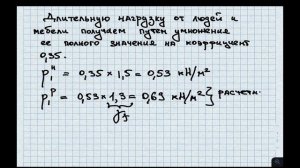 Длительную нагрузку от людей и
мебели получаем путем умножения
ее полного значения на коэффициент
0,35.
p₁ᴴ = 0,35 × 1,5 = 0,53 кН/м²
p₁ᴾ = 0,53 × 1,3 = 0,69 кН/м² } расчетн.
γf